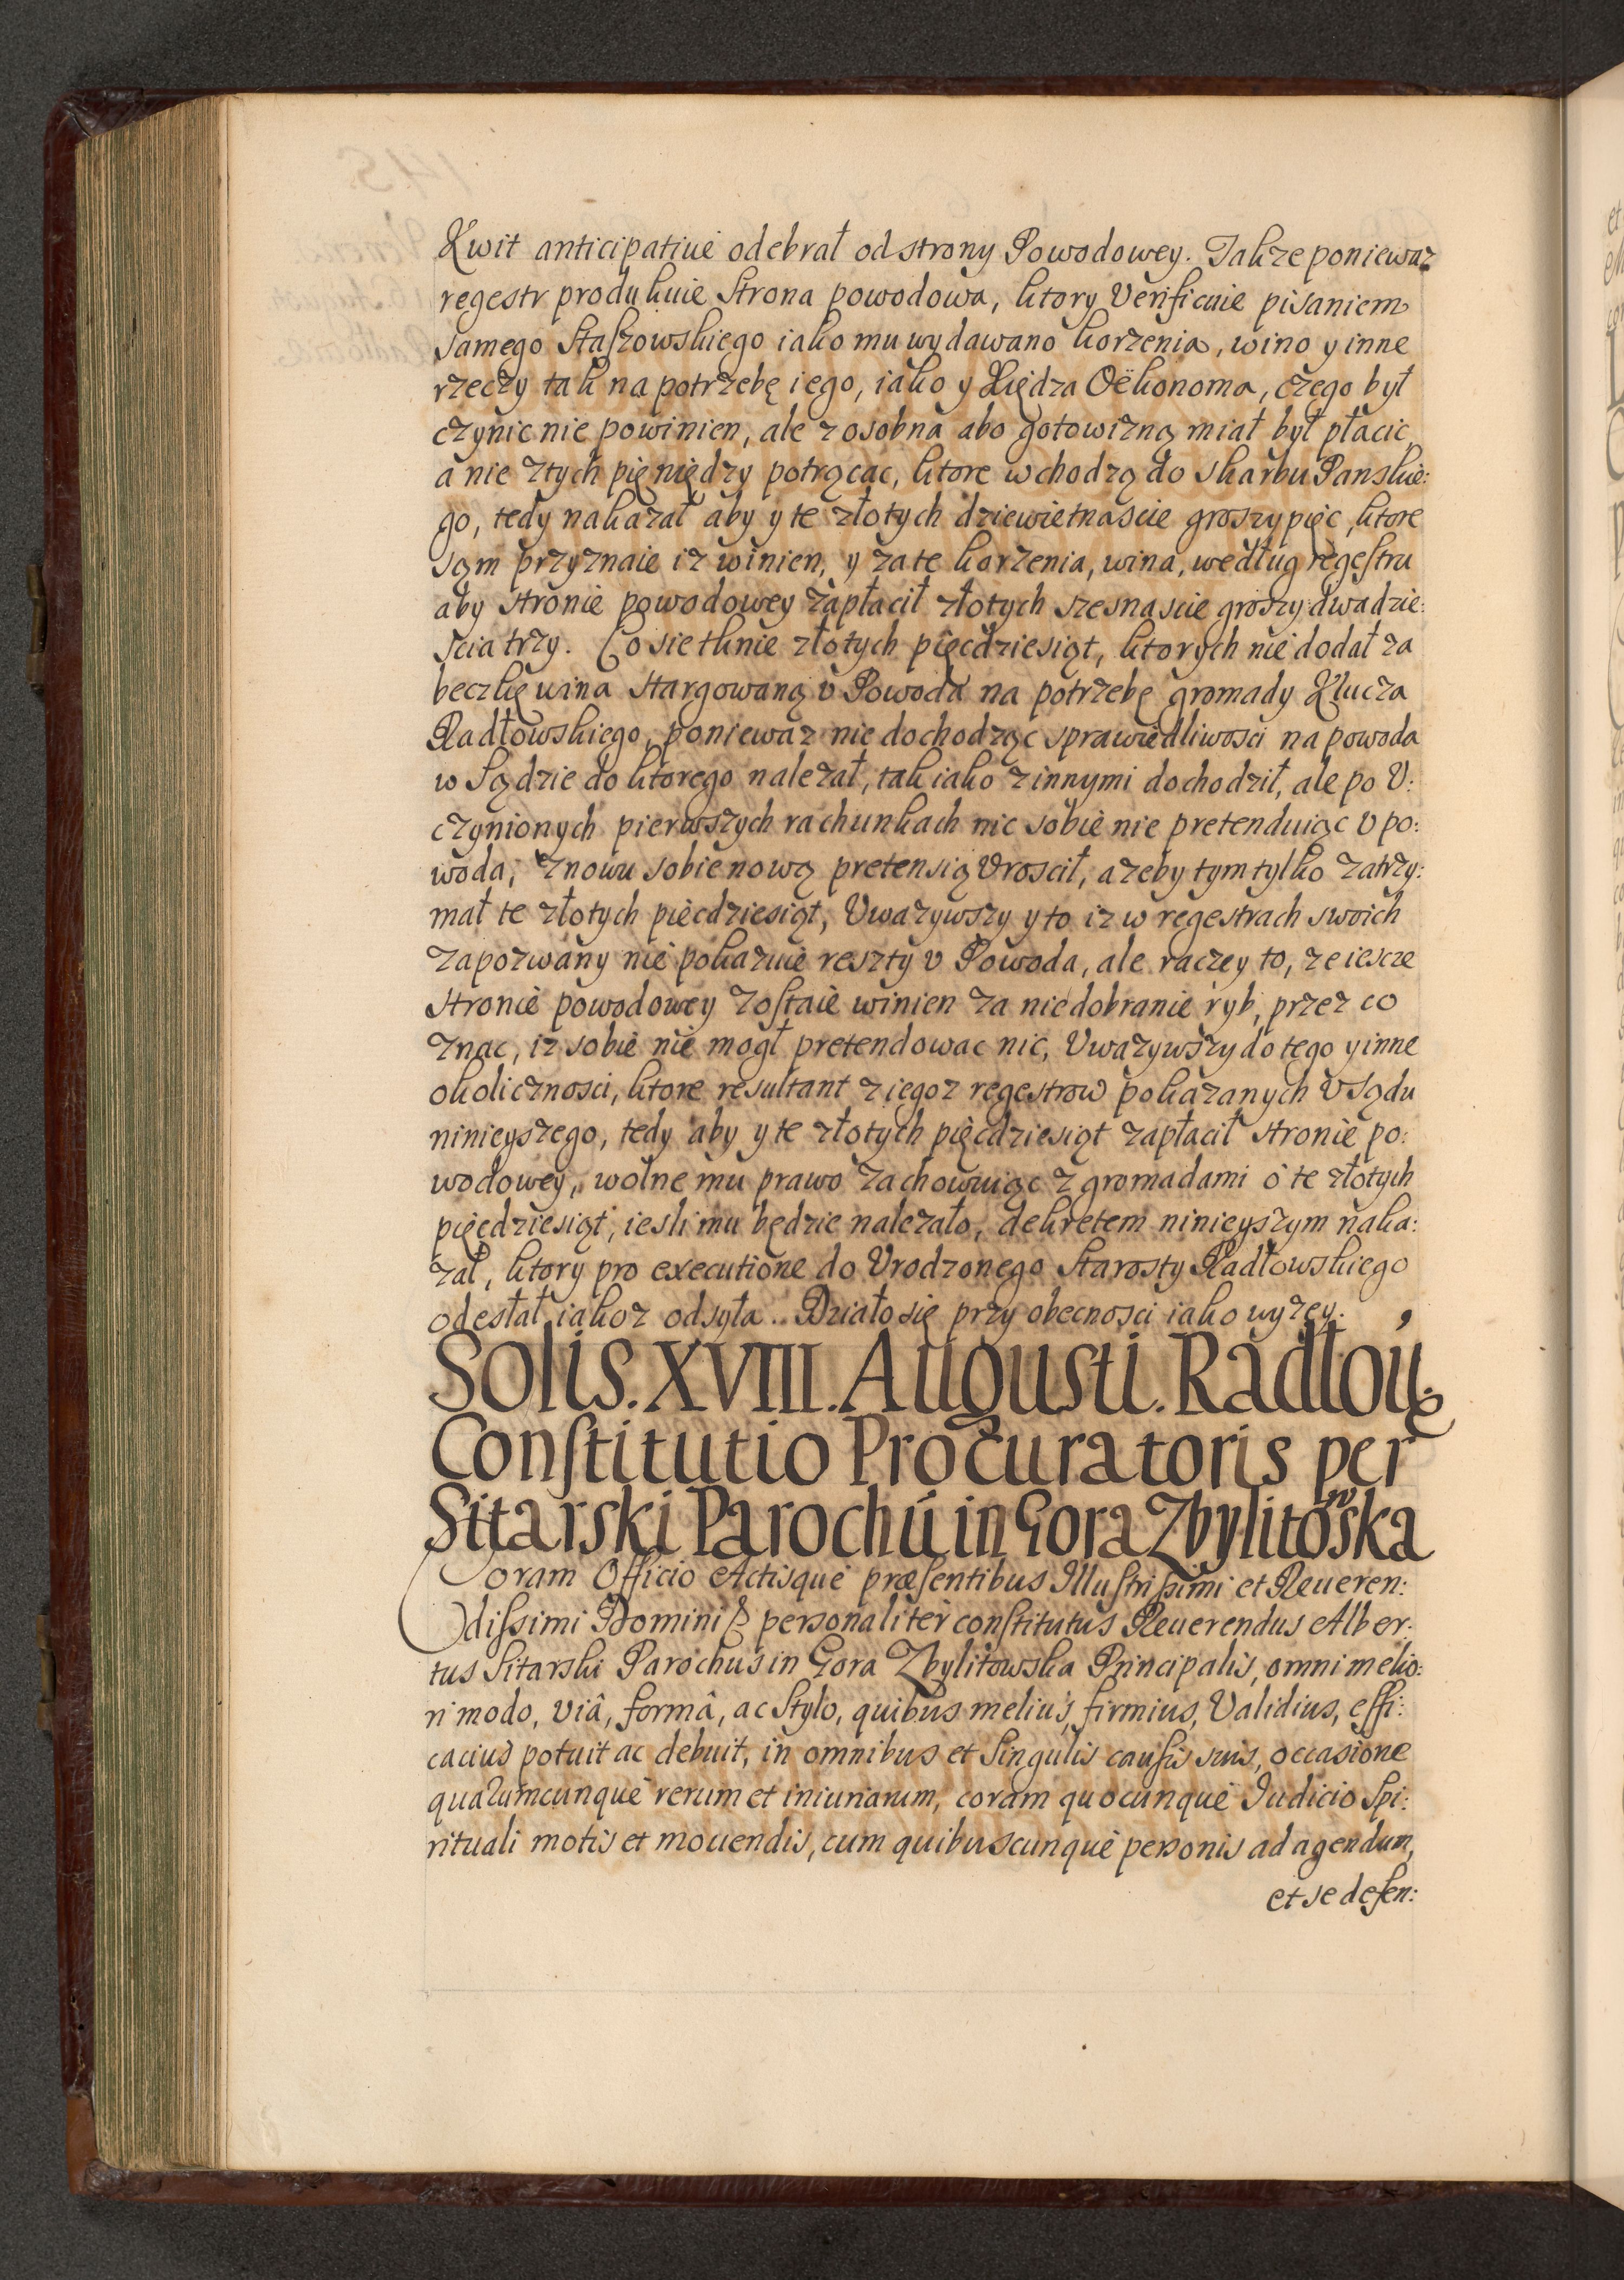 Kwit anticipatiuè odebrał od strony Powodowey. Takze poniewaz
regestr produkuie Strona powodowa, ktory Verificuie pisaniem
samego Staszowskiego iako mu wydawano korzenia, wino y inne
rzeczy tak na potrzebę iego, iako y Xiędza Oëkonoma, czego był
czynic nie powinien, ale z osobna abo gotowizną miał był płacic,
a nie ztych pięniędzy potrącac, ktore wchodzą do skarbu Panskie:
go, tedy nakazał aby y te złotych dziewietnascie groszy pięc, ktore
sąm przyznaie iz winien, y za te korzenia, wina, według regestru
aby stronie powodowey zapłacił złotych szesnascie groszy dwadzie:
scia trzy. Co sie tknie złotych pięcdziesiąt, ktorych nie dodał za
beczkę wina stargowaną v Powoda na potrzebę gromady Klucza
Radłowskiego, poniewaz nie dochodząc sprawiedliwosci na powoda
w Sądzie do ktorego nalezał, tak iako z innymi dochodził, ale po V:
czynionych pierwszych rachunkach nic sobie nie pretenduiąc v po:
woda, znowu sobie nową pretensią Vroscił, azeby tym tylko zatrzy:
mał te złotych pięcdziesiąt, Vwazywszy y to iz w regestrach swoich
zapozwany nie pokazuie reszty v Powoda, ale raczey to, ze iescze
stronie powodowey zostaie winien za niedobranie ryb, przez co
znac, iz sobie nie mogł pretendowac nic, Vwazywszy do tego y inne
okolicznosci, ktore resultant z iegoz regestrow pokazanych v Sądu
ninieyszego, tedy aby y te złotych pięcdziesiąt zapłacił stronie po:
wodowey, wolne mu prawo zachowuiąc z gromadami o te złotych
pięcdziesiąt, iesli mu będzie nalezało, dekretem ninieyszym naka:
zał, ktory pro executione do Vrodzonego Starosty Radłowskiego
odesłał iakoz odsyła. Działo się przy obecnosci iako wyzey.
Solis. XVIII. Augusti. Radłouię
Constitutio Procuratoris per
Sitarski Parochũ in Gora Zbylitowska
Coram Officio Actisquè præsentibus Illustrissimi et Reueren:
dissimi Domini & personalitèr constitutus Reuerendus Alber:
tus Sitarski Parochus in Gora Zbylitowska Principalis, omni melio:
ri modo, viâ, formâ, ac Stylo, quibus melius, firmius, Validius, effi:
cacius potuit ac debuit, in omnibus et Singulis causis suis, occasione
quarumcunquè rerum et iniuriarum, coram quocunquè Iudicio Spi:
rituali motis et mouendis, cum quibuscunquè personis ad agendum,
et se defen: